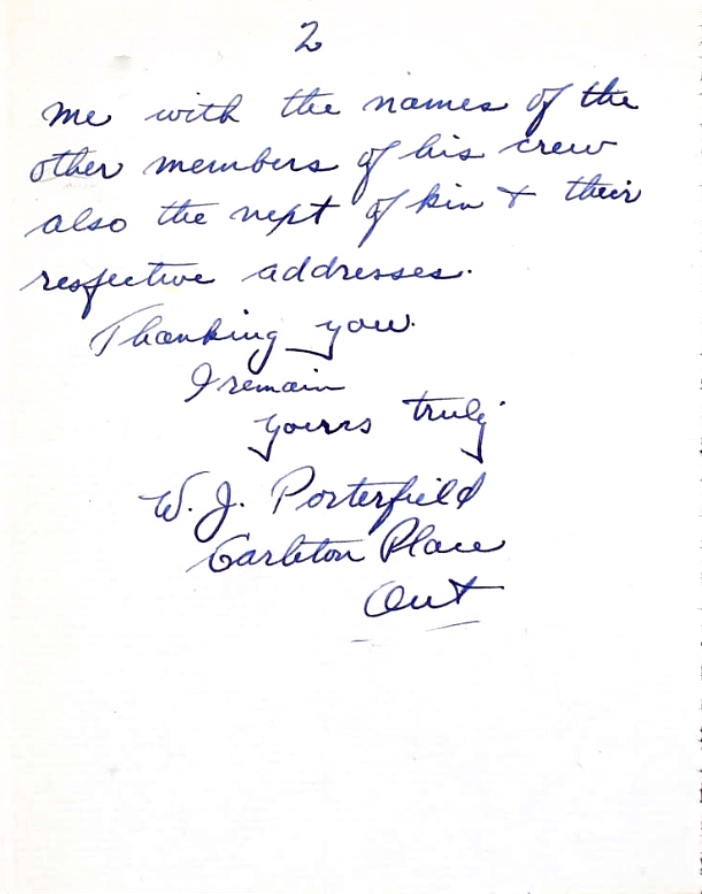 2
me with the names of the
other members of his crew
also the next of kin + their
respective addresses.
Thanking you.
I remain
yours truly
W. J. Porterfield
Carleton Place
Ont